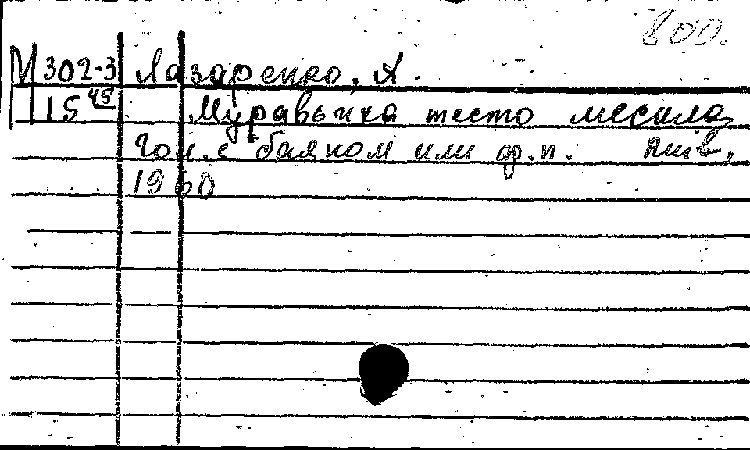 800.
М302-3 Лазаренко, А.
15 45 Муравьика тесто месила
Гол. с баяном или ф.п.
1960